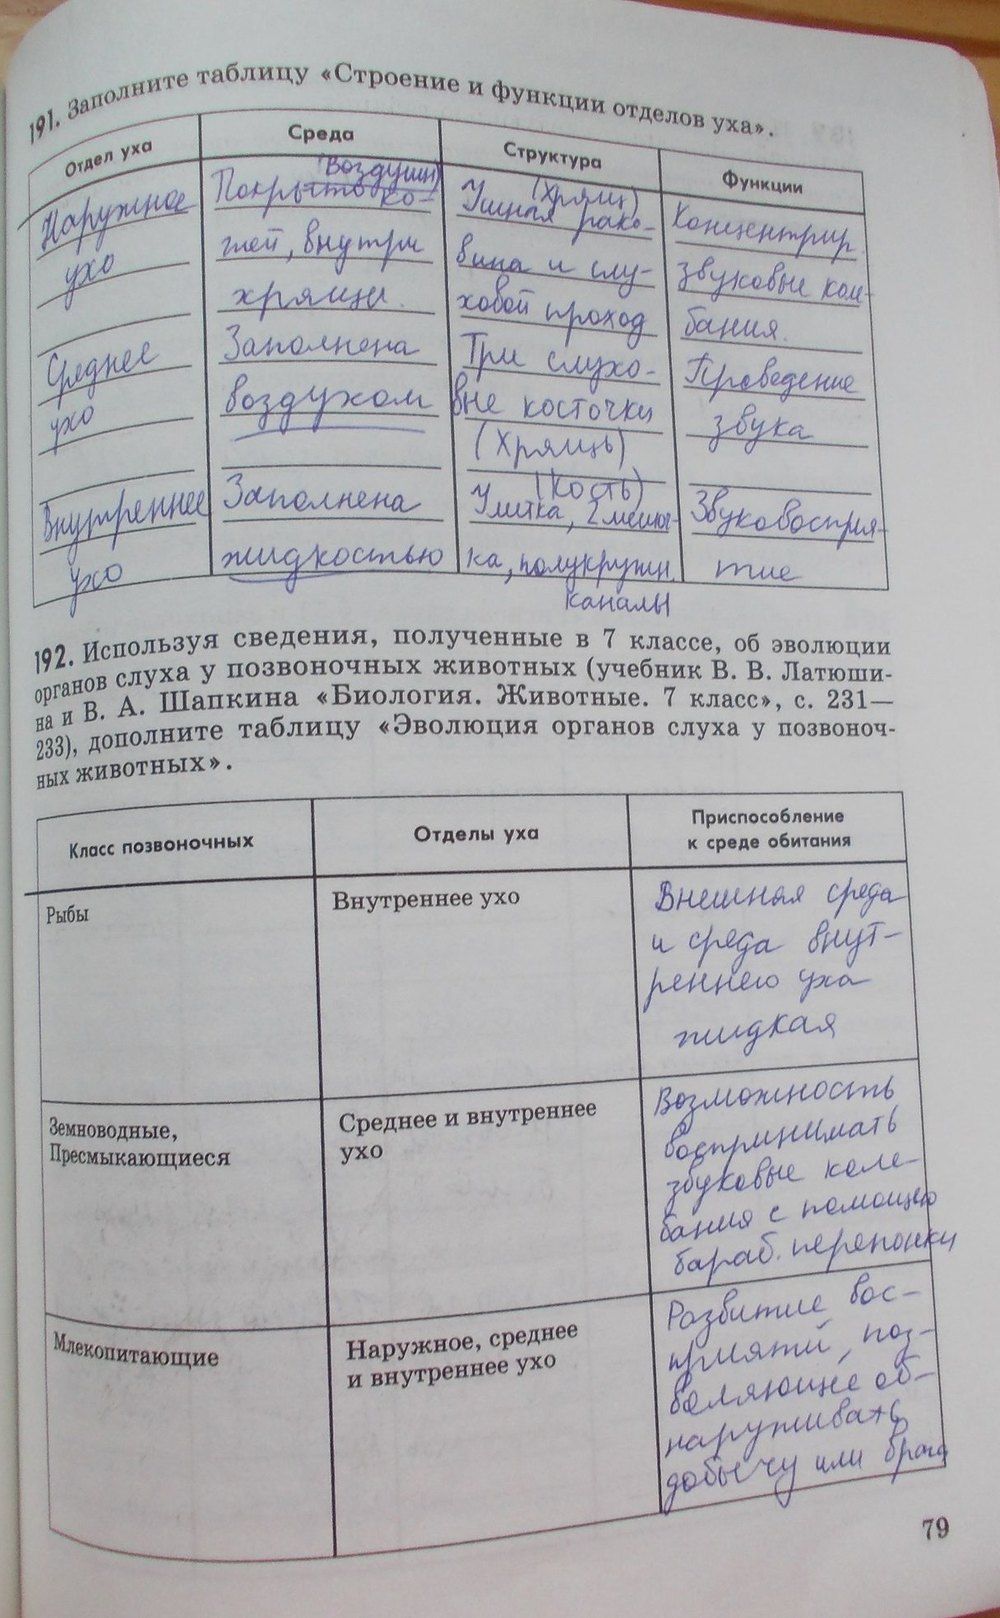 191. Заполните таблицу «Строение и функции отделов уха».
Отдел уха
Среда
Структура
Функции
Наружное
ухо
(Воздушн)
Покрыто ко-
жей, внутри
хрящи.
(Хрящ)
Ушная рако-
вина и слу-
ховой проход
Концентрир.
звуковые коле-
бания.
Среднее
ухо
Заполнена
воздухом
Три слухо-
вые косточки
(Хрящь)
Проведение
звука
Внутреннее
ухо
Заполнена
жидкостью
(Кость)
Улитка, 2 мешоч-
ка, полукружн.
каналы
Звуковосприя-
тие
192. Используя сведения, полученные в 7 классе, об эволюции
органов слуха у позвоночных животных (учебник В. В. Латюши-
на и В. А. Шапкина «Биология. Животные. 7 класс», с. 231—
233), дополните таблицу «Эволюция органов слуха у позвоноч-
ных животных».
Класс позвоночных
Отделы уха
Приспособление
к среде обитания
Рыбы
Внутреннее ухо
Внешняя среда
и среда внут-
реннего уха
жидкая
Земноводные,
Пресмыкающиеся
Среднее и внутреннее
ухо
Возможность
воспринимать
звуковые коле-
бания с помощью
бараб. перепонки
Млекопитающие
Наружное, среднее
и внутреннее ухо
Развитие вос-
приятий, поз-
воляющее об-
наруживать
добычу или врага
79